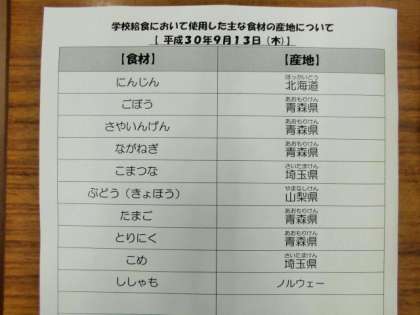 学校給食において使用した主な食材の産地について
【 平成30年9月13日（木）】
【食材】 【産地】
にんじん 北海道 ほっかいどう
ごぼう 青森県 あおもりけん
さやいんげん 青森県 あおもりけん
ながねぎ 青森県 あおもりけん
こまつな 埼玉県 さいたまけん
ぶどう（きょほう） 山梨県 やまなしけん
たまご 青森県 あおもりけん
とりにく 青森県 あおもりけん
こめ 埼玉県 さいたまけん
ししゃも ノルウェー